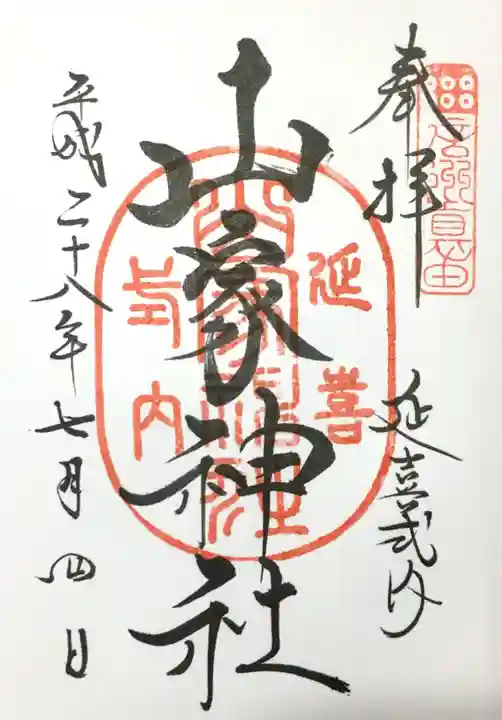 信州真田
奉拝
延喜式内
山家神社
延喜
山家神社
式内
平成二十八年七月四日